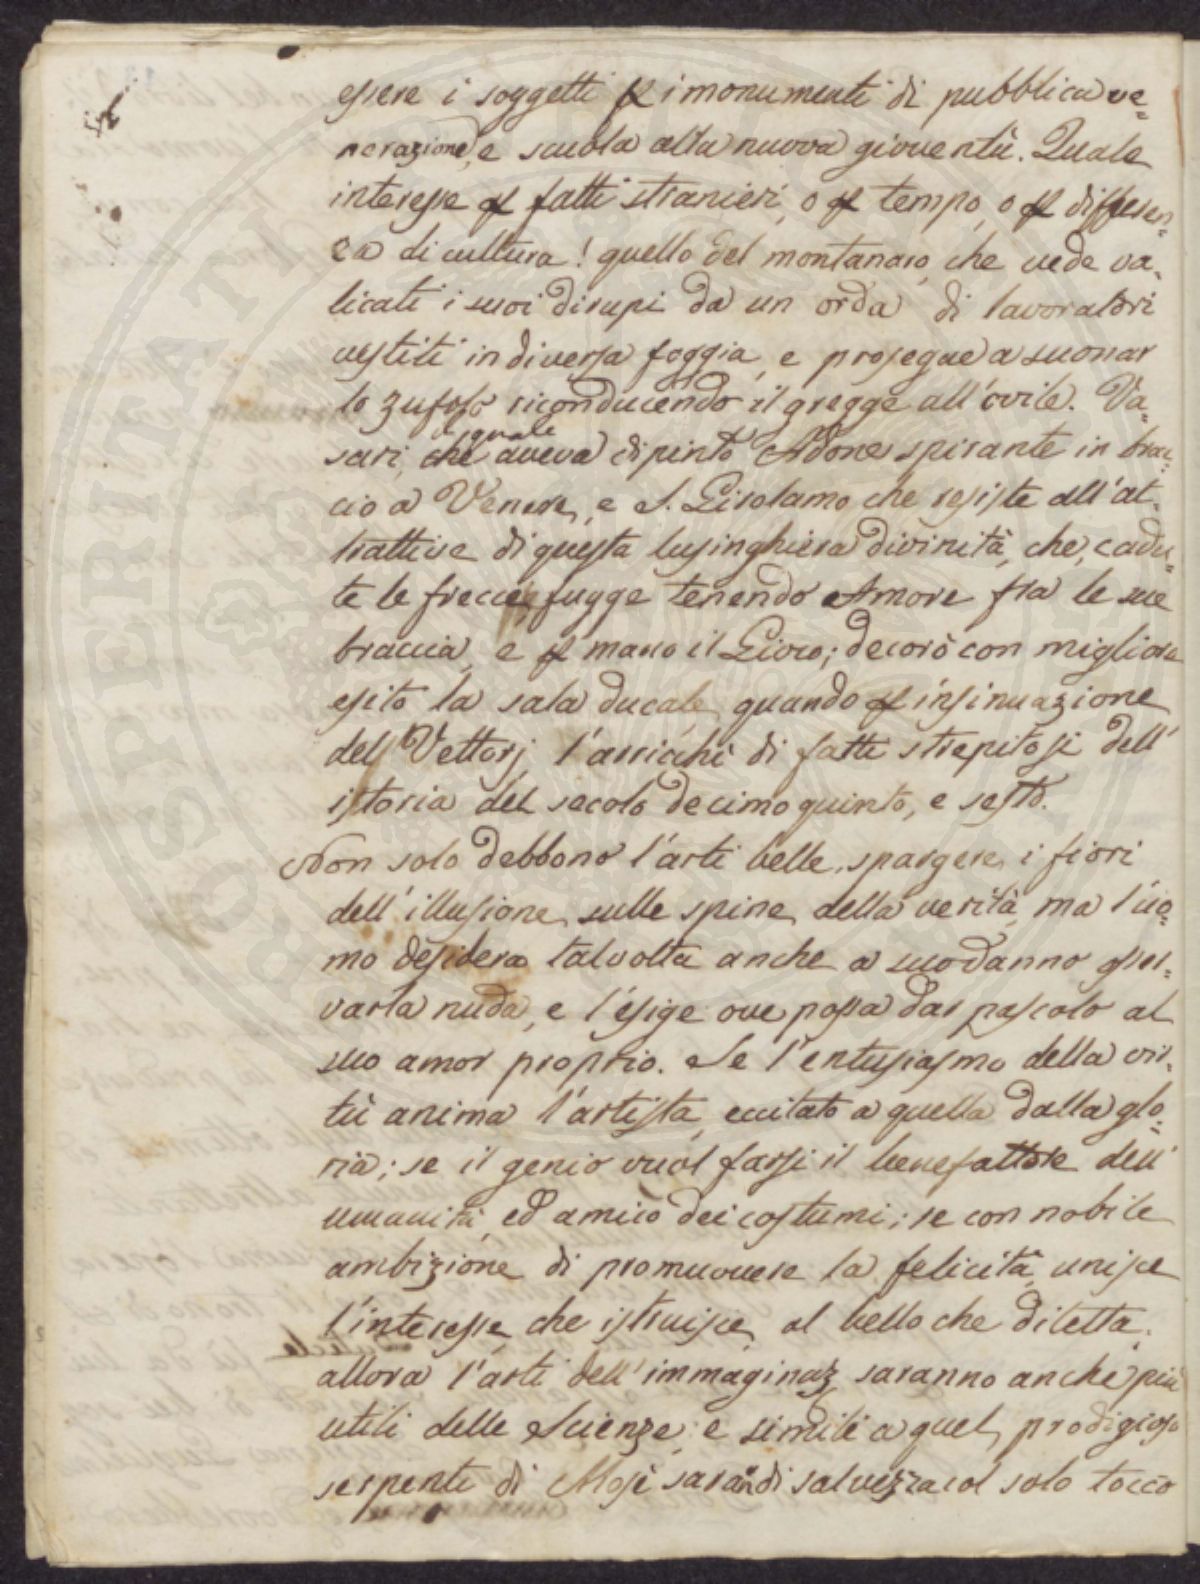 essere i soggetti p i monumenti di pubblica ve=
nerazione, e scuola alla nuova gioventù. Quale
interesse p fatti stranieri, o p tempo, o p differen=
za di cultura! quello del montanaro, che vede va=
licati i suoi dirupi da un orda di lavoratori
vestiti in diversa foggia, e prosegue a suonar
lo zufolo riconducendo il gregge all'ovile. Va=
sari, che il quale aveva dipinto Adone spirante in brac=
cio a Venere, e S. Girolamo, che resiste all'at=
trattive di questa lusinghiera divinità, che, cadu=
te le freccie, fugge tenendo Amore fra le sue
braccia, e p mano il Gioco; decorò con migliore
esito la sala ducale, quando p insinuazione
del Vettorj l'arricchì di fatti strepitosi dell'
istoria del secolo decimoquinto, e sesto.
Non solo debbono l'arti belle spargere i fiori
dell'illusione sulle spine della verità, ma l'uo=
mo desidera talvolta anche a suo danno osser=
varla nuda, e l'esige ove possa dar pascolo al
suo amor proprio. Se l'entusiasmo della vir=
tù anima l'artista, eccitato a quella dalla glo=
ria; se il genio vuol farsi il benefattore dell'
umanità, ed amico dei costumi; se con nobile
ambizione di promuovere la felicità, unisce
l'interesse, che istruisce, al bello che diletta,
allora l'arti dell'immaginaz saranno anche più
utili delle Scienze, e simili a quel prodigioso
serpente di Mosè saran di salvezza col solo tocco
PROSPERITATI